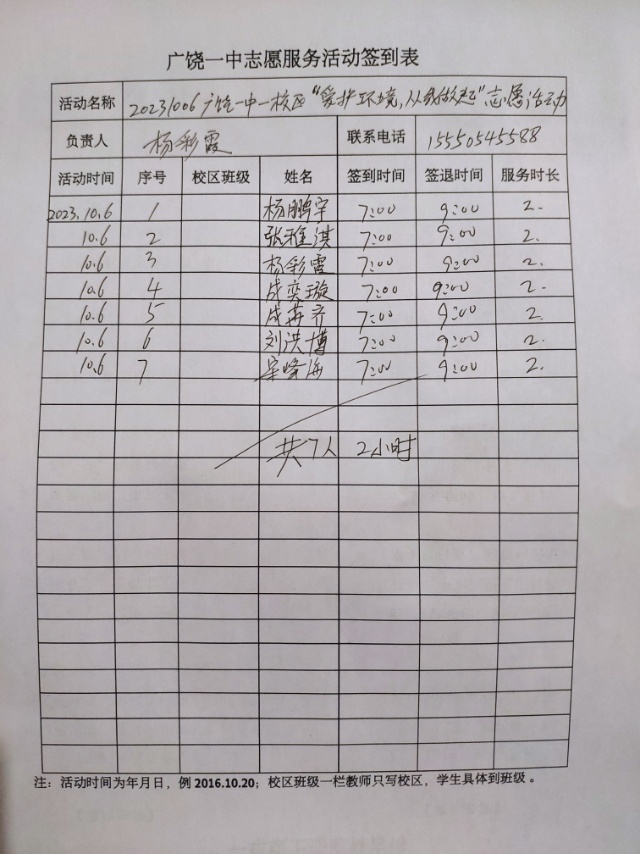 广饶一中志愿服务活动签到表
活动名称 20231006广饶一中一校区“爱护环境,从我做起”志愿活动
负责人 杨彩霞 联系电话 15550545588
活动时间 序号 校区班级 姓名 签到时间 签退时间 服务时长
2023.10.6 1 杨鹏宇 7:00 9:00 2.
10.6 2 张雅淇 7:00 9:00 2.
10.6 3 杨彩霞 7:00 9:00 2.
10.6 4 成奕璇 7:00 9:00 2.
10.6 5 成苒齐 7:00 9:00 2.
10.6 6 刘洪博 7:00 9:00 2.
10.6 7 峰海 7:00 9:00 2.
共7人 2小时
注：活动时间为年月日，例 2016.10.20；校区班级一栏教师只写校区，学生具体到班级。